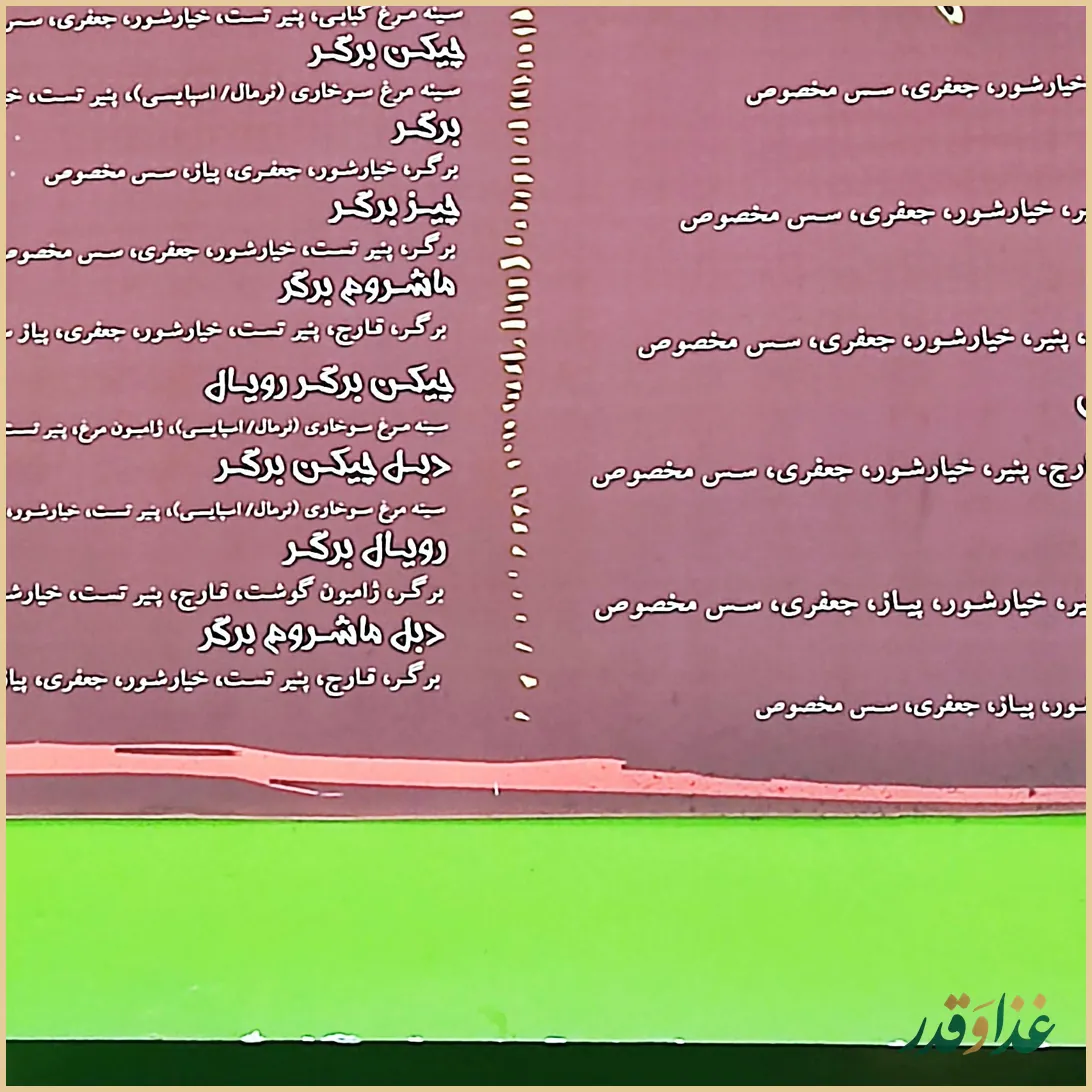 خیارشور، جعفری، سس مخصوص
پنیر، خیارشور، جعفری، سس مخصوص
قارچ، پنیر، خیارشور، جعفری، سس مخصوص
خیارشور، پیاز، جعفری، سس مخصوص
پیاز، جعفری، سس مخصوص
سینه مرغ کبابی، پنیر تست، خیارشور، جعفری،
چیکن برگر
سینه مرغ سوخاری (نرمال/ اسپایسی)، پنیر تست،
برگر
برگر، خیارشور، جعفری، پیاز، سس مخصوص
چیز برگر
برگر، پنیر تست، خیارشور، جعفری، سس مخصوص
ماشروم برگر
برگر، قارچ، پنیر تست، خیارشور، جعفری، پیاز
چیکن برگر رویال
سینه مرغ سوخاری (نرمال/ اسپایسی)، ژامبون مرغ، پنیر تست
دبل چیکن برگر
سینه مرغ سوخاری (نرمال/ اسپایسی)، پنیر تست، خیارشور،
رویال برگر
برگر، ژامبون گوشت، قارچ، پنیر تست،
دبل ماشروم برگر
برگر، قارچ، پنیر تست، خیارشور، جعفری،
غذا و قدر